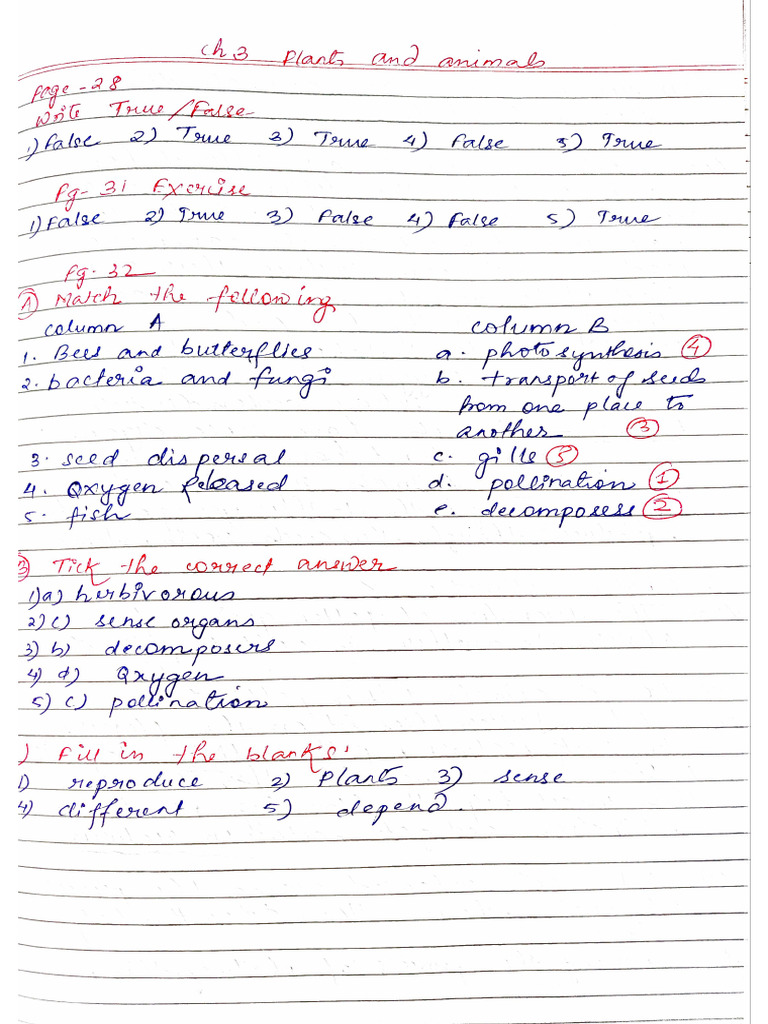 Ch 3 Plants and animals
Page - 28
Write True/False
1) False 2) True 3) True 4) False 5) True
Pg- 31 Exercise
1) False 2) True 3) False 4) False 5) True
Pg. 32
1 Match the following
column A column B
1. Bees and butterflies. a. photosynthesis 4
2. bacteria and fungi b. transport of seeds
from one place to
another 3
3. seed dispersal c. gills 5
4. Oxygen Released d. pollination 1
5. fish e. decomposers 2
3 Tick the correct answer
1) a) herbivorous
2) c) sense organs
3) b) decomposers
4) d) Oxygen
5) c) pollination
) Fill in the blanks:
1) reproduce 2) Plants 3) sense
4) different 5) depend.